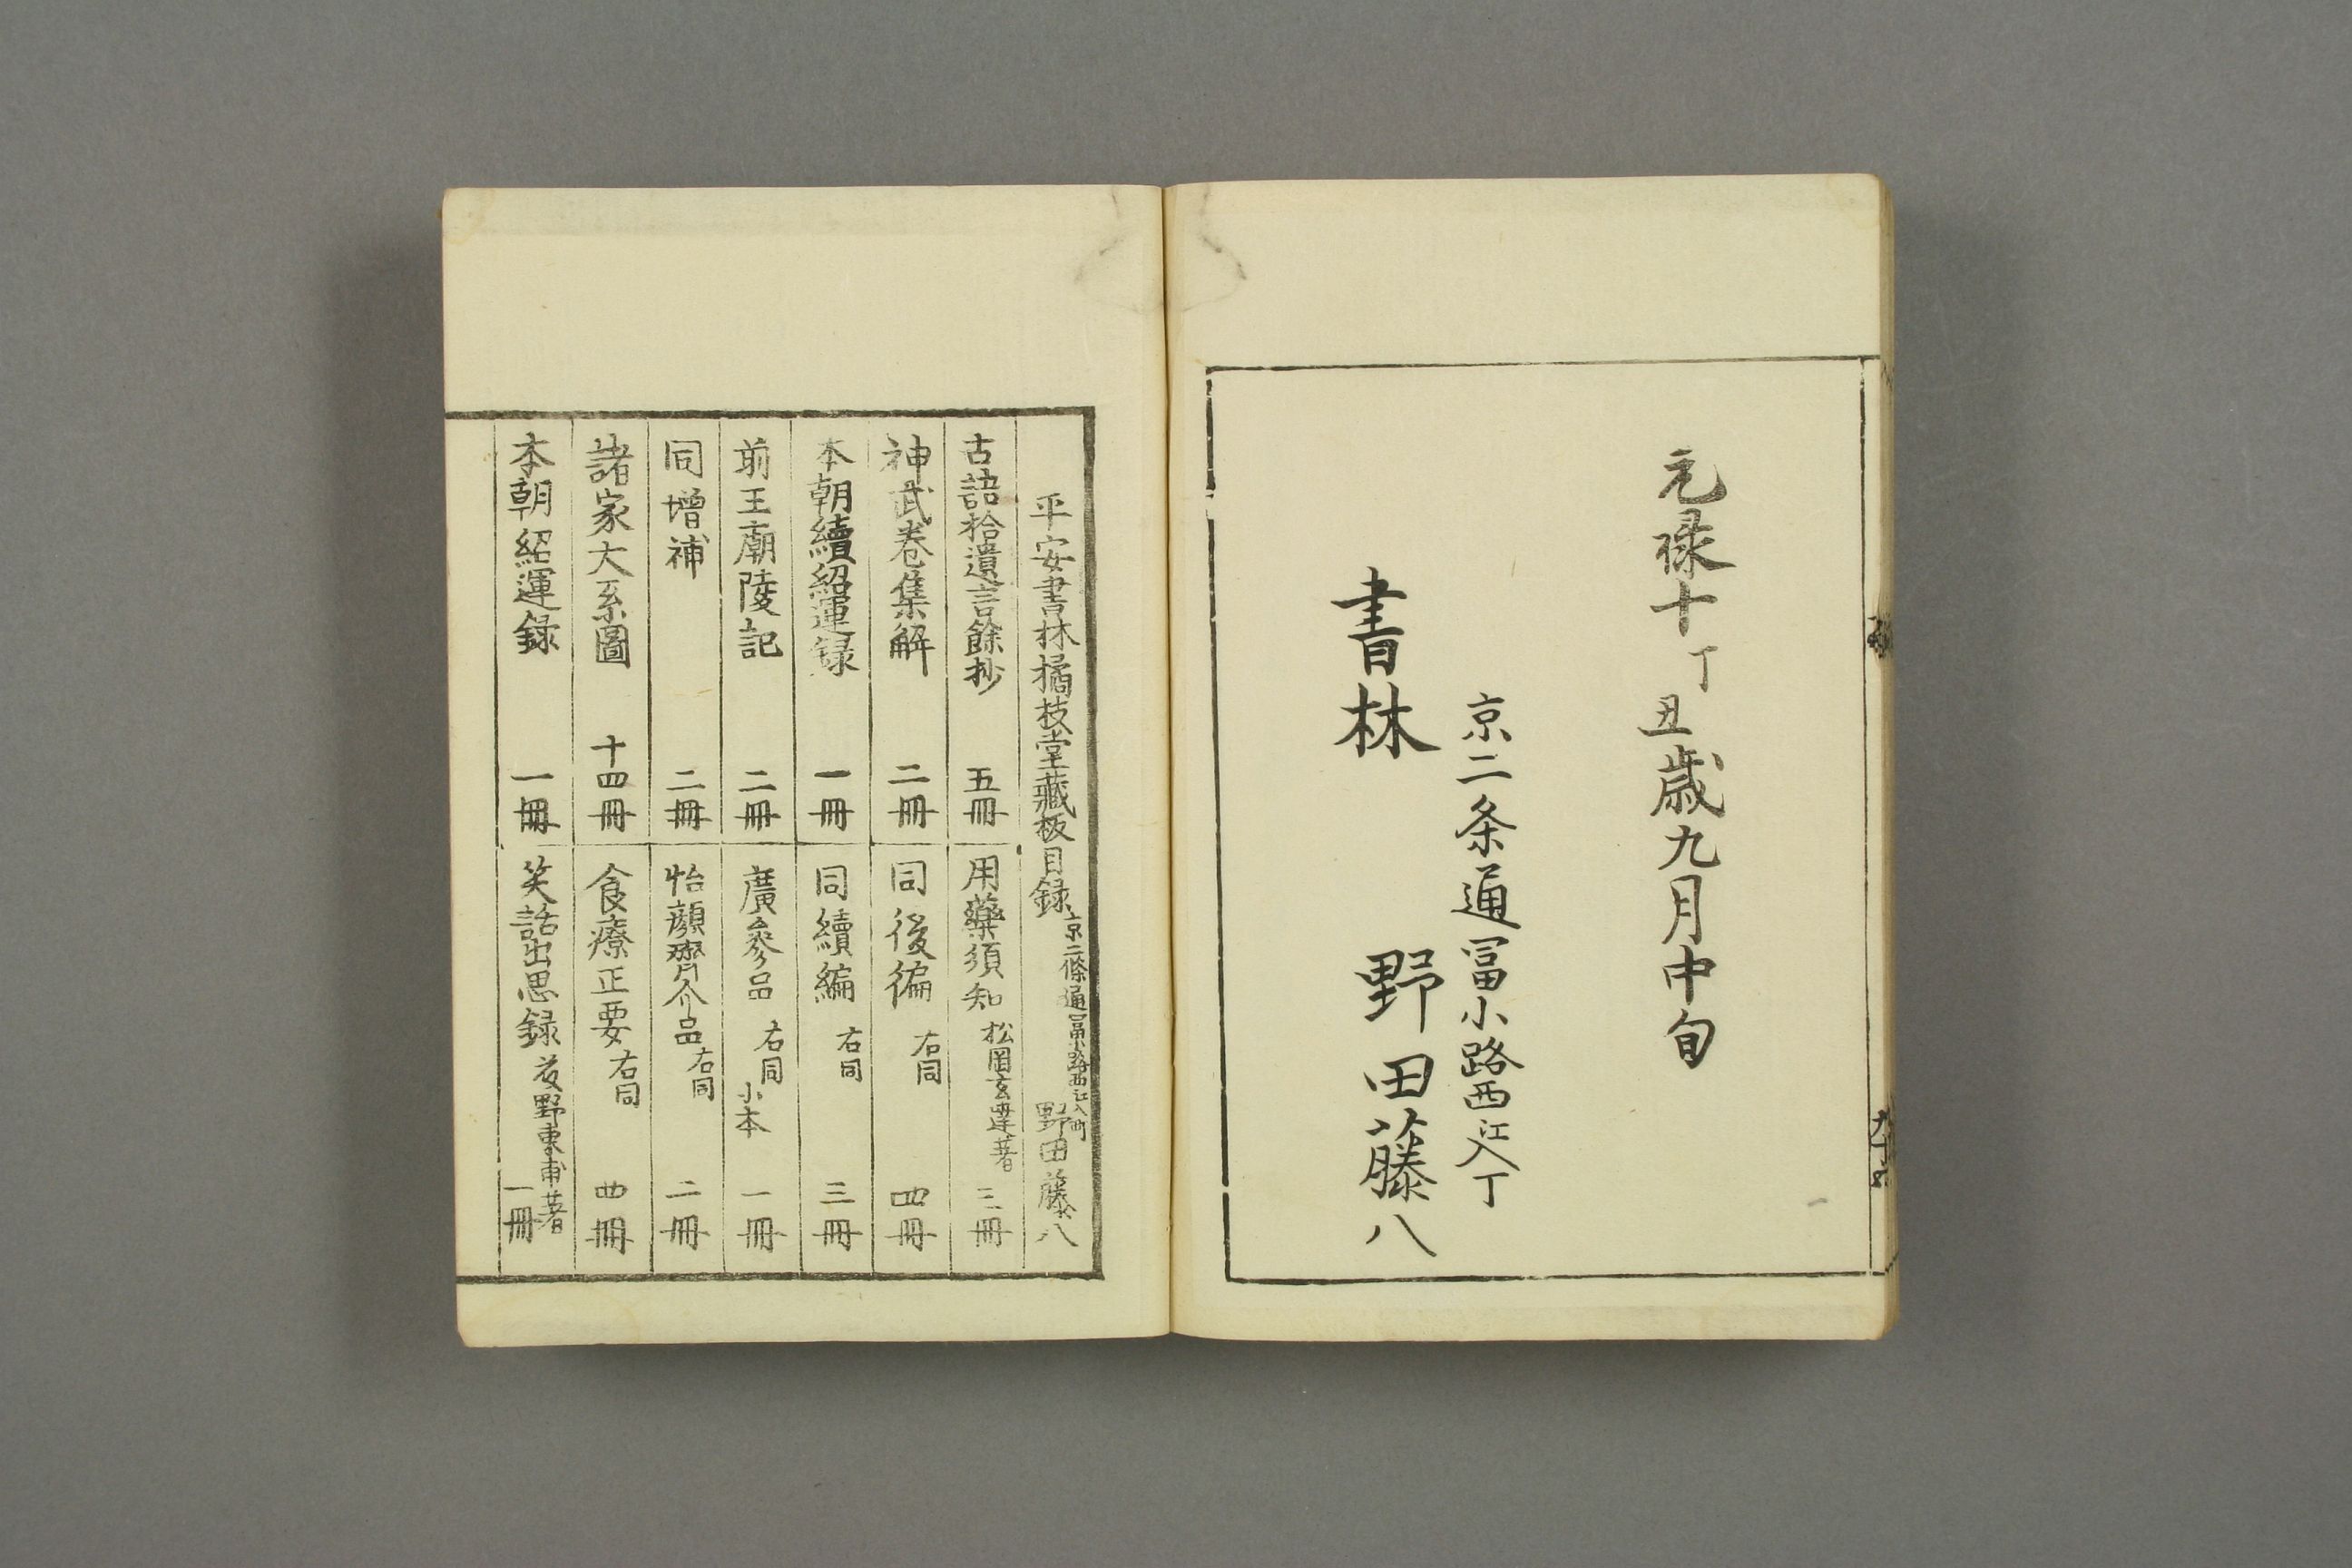 元禄十丁丑歳九月中旬
京二条通冨小路西江入丁
書林 野田藤八
平安書林橘枝堂藏板目録 京二條通冨小路西江入町 野田藤八
古語拾遺言餘抄 五冊
用藥須知 松岡玄達著 三冊
神武卷集解 二冊
同後徧 右同 四冊
本朝續紹運録 一冊
同續編 右同 三冊
前王廟陵記 二冊
廣參品 右同 小本 一冊
同增補 二冊
怡顔齋介品 右同 二冊
諸家大系圖 十四冊
食療正要 右同 四冊
本朝紹運録 一冊
笑話出思録 野東甫著 一冊